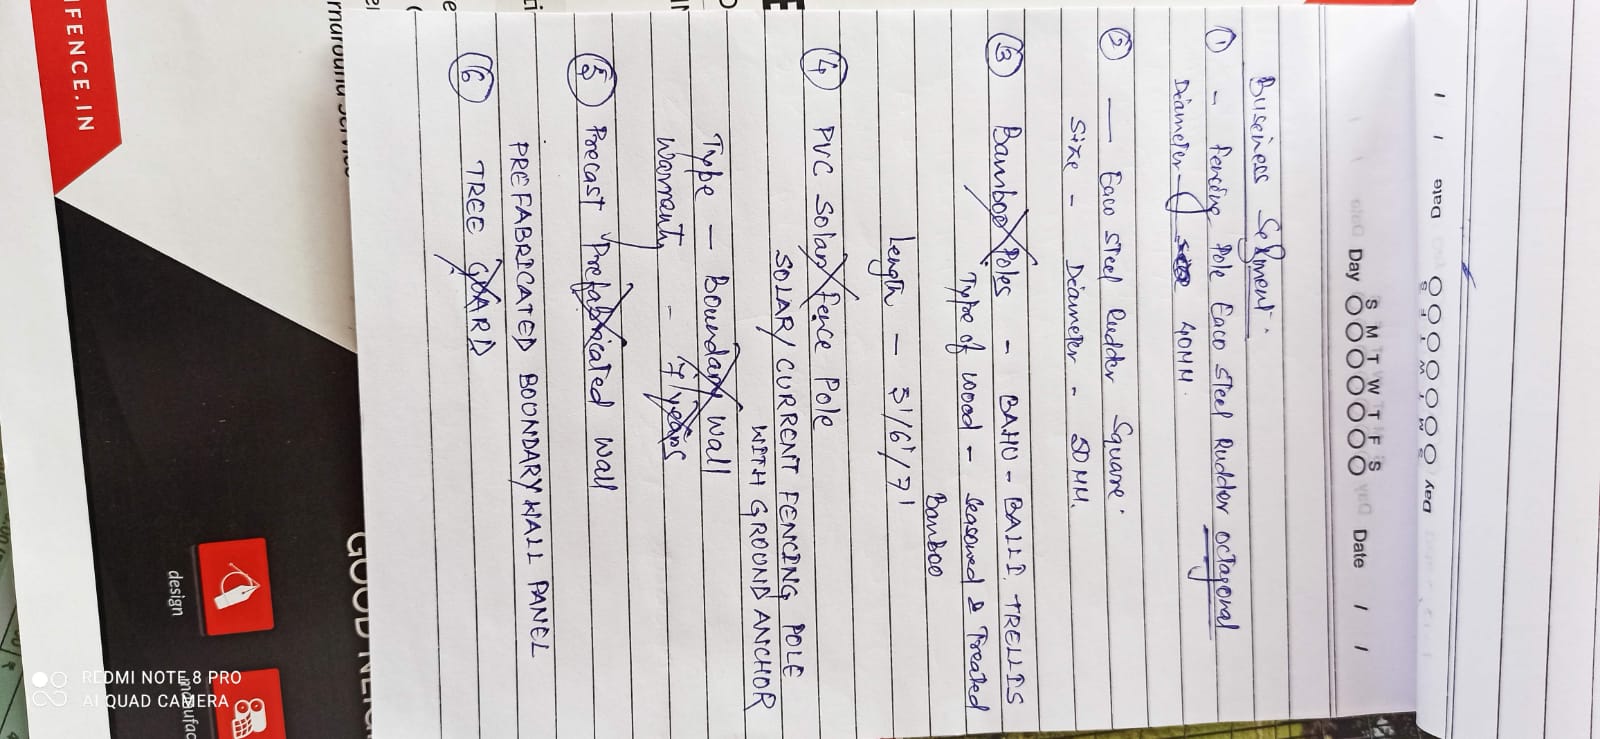 Day S M T W T F S Date / /
Day S M T W T F S Date / /
Buseiness Segment.
① - fencing Pole Eaco Steel Rudder octagonal
Diameter - 40MM.
② — Eaco Steel Rudder Square.
Size - Diameter - 50 MM.
③ Bamboo Poles - BAHU-BALLI TRELLIS
Type of wood - Seasowed & Treated
Bamboo
Length - 5'/6'/7'
④ PVC Solar Fence Pole
SOLAR/ CURRENT FENCING POLE
WITH GROUND ANCHOR
Type - Boundary wall
Warranty - 7 years
⑤ Precast Prefabricated wall
PREFABRICATED BOUNDARY WALL PANEL
⑥ TREE GUARD
GOOD
design
FENCE.IN
REDMI NOTE 8 PRO
AI QUAD CAMERA